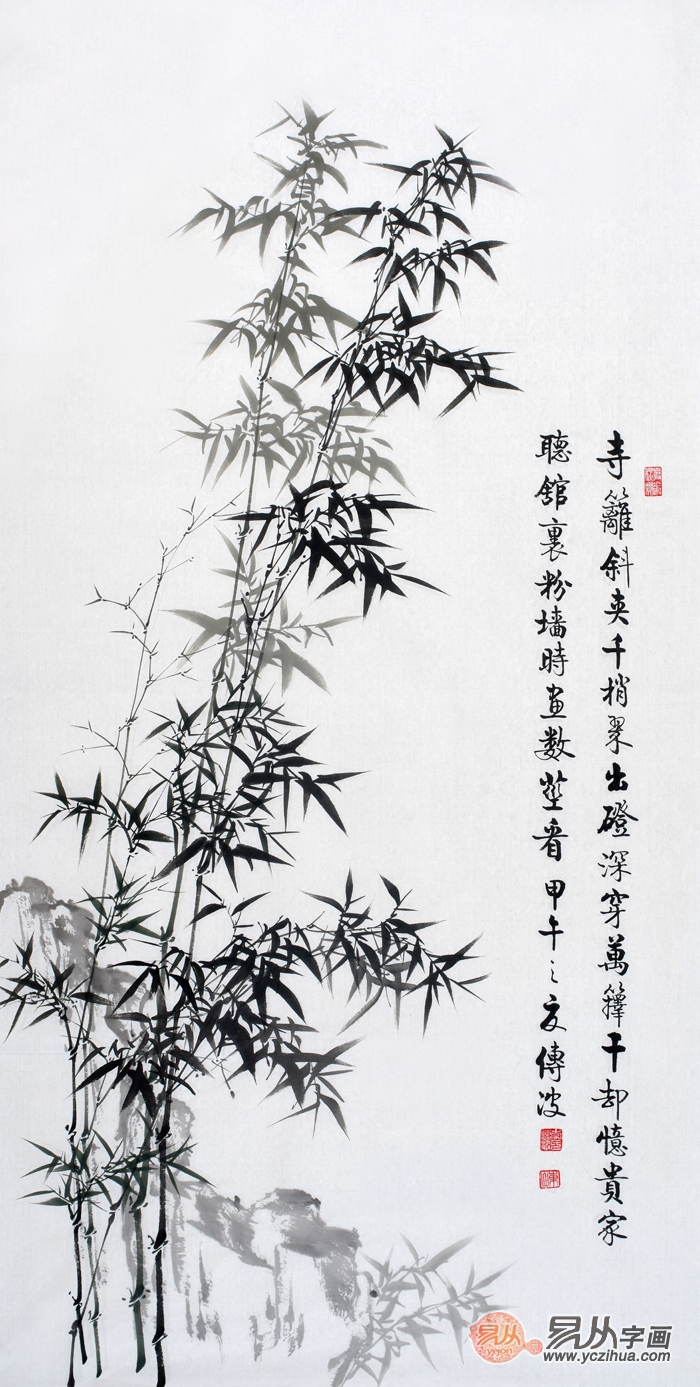 寺籬斜夾千梢翠出磴深穿萬籜干却憶貴家
聽館裏粉墙時畫数莖看甲午之夏傳波
易从
易从字画
www.yczihua.com